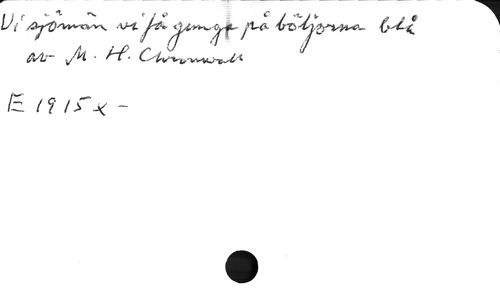 Vi sjömän vi få gunga på böljorna blå
av M. H. Chronwall
E 1915 x -